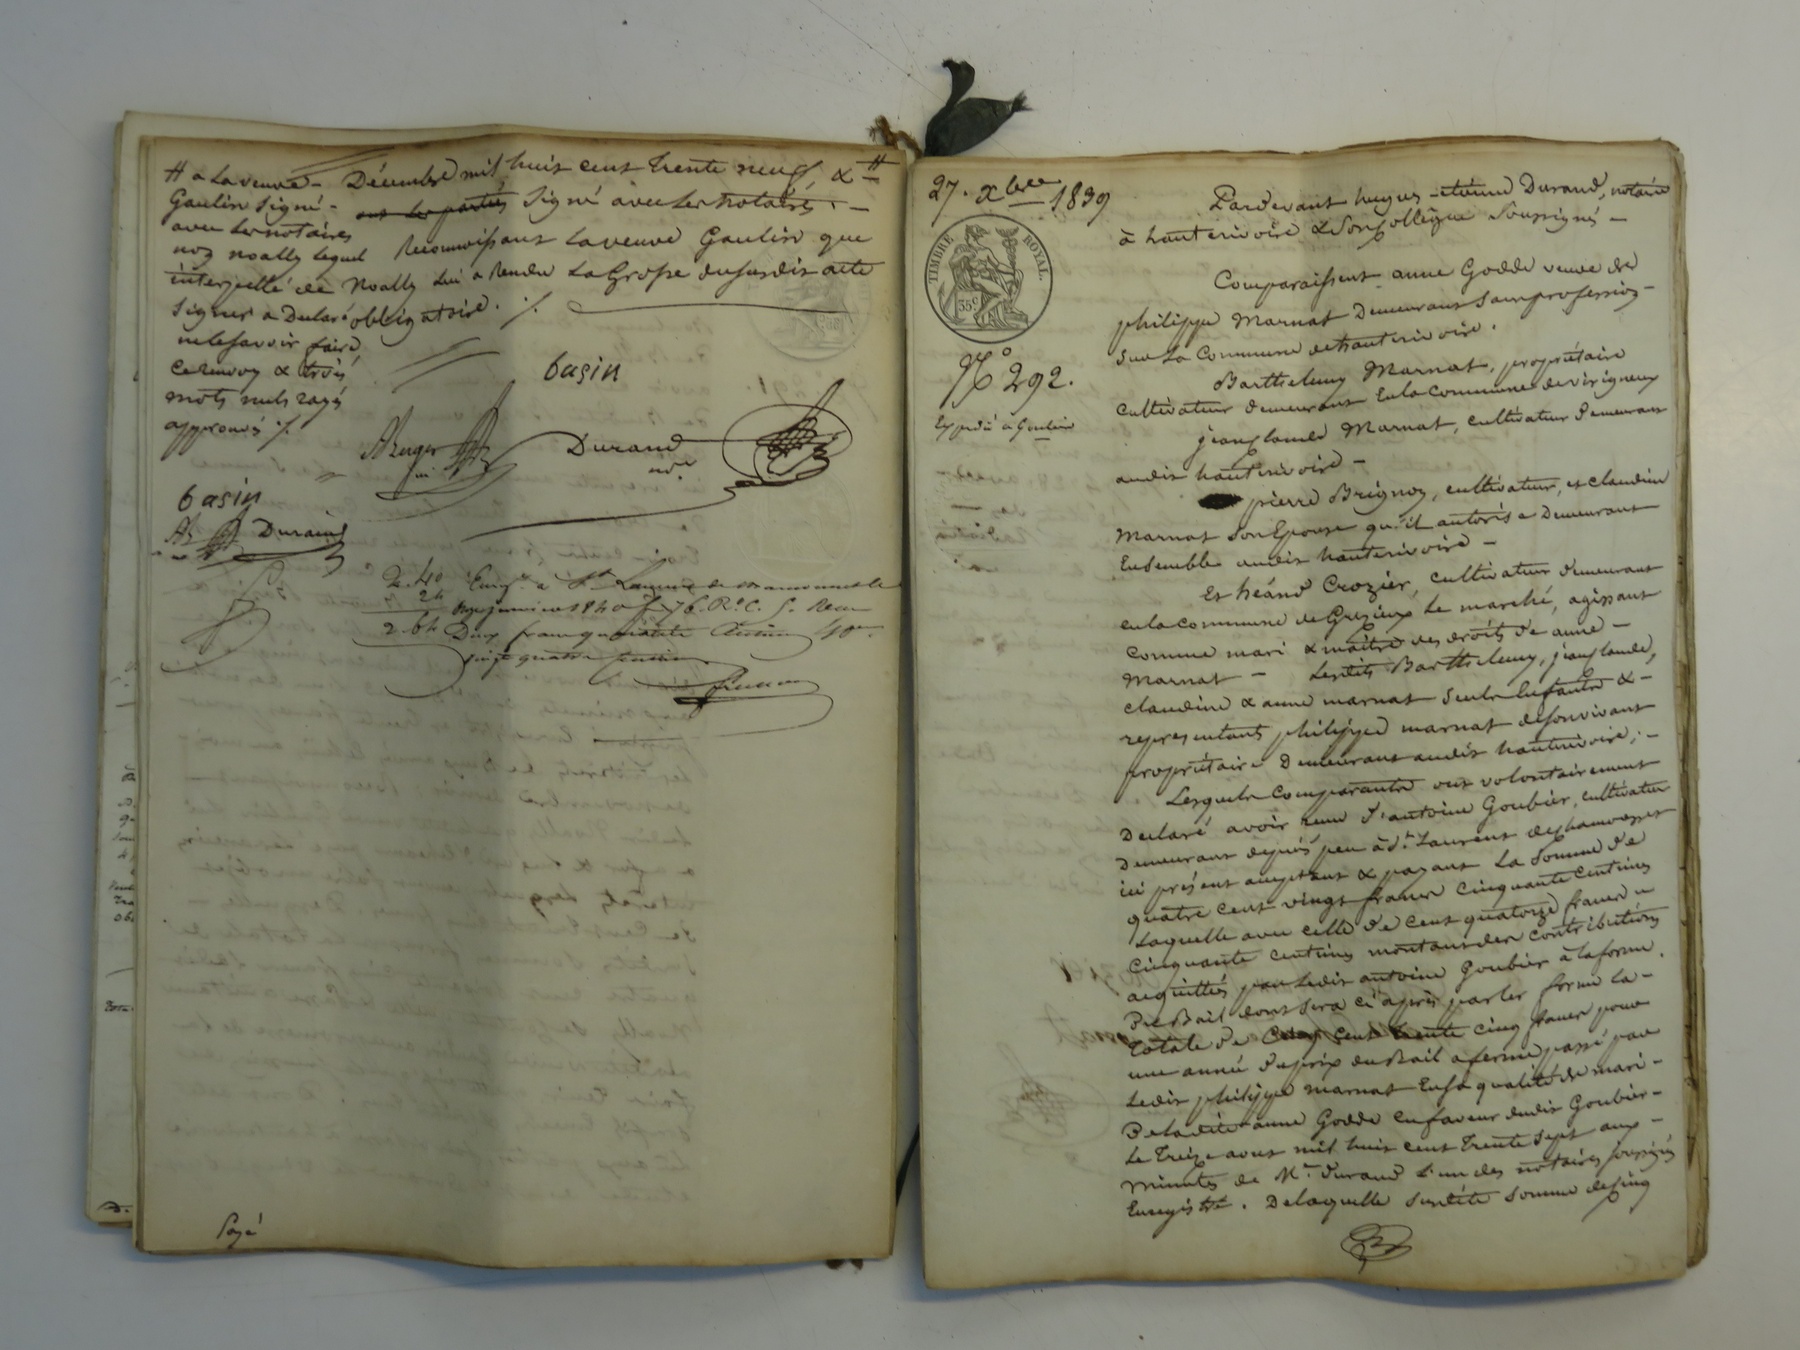 # a la veuve
Gaulin signé -
avec les notaires
non noally lequel
interpellé de
signer a Déclaré
ne le savoir faire
ce renvoy & trois
mots nuls rayés
approuvés ./.
Décembre mil huit cent trente neuf, & #
ont les parties signé avec les notaires. -
Reconnoissant la veuve Gaulin que
Noally lui a rendu la Grosse du susdit acte
obligatoire. ./.
basin
Durand
nre
basin
Durand
2 . 40
24
2 . 64
Deux francs quarante centimes
vingt quatre centimes
Payé
27. Xbre 1839
TIMBRE ROYAL.
35 c
No 292.
Expédié à Goubier
Pardevant hugues-etienne Durand, notaire
à hauterivoire & Son Collègue Soussignés -
Comparaissent anne Godde veuve de
philippe Marnat Demeurant Sans profession -
Sur la Commune de hauterivoire.
Barthelemy Marnat, propriétaire
cultivateur demeurant En la Commune de virigneux
jean claude Marnat, cultivateur demeurant
audit hauterivoire -
pierre Brignon, cultivateur, et claudine
Marnat Son Epouse qu'il autorise Demeurant
Ensemble audit hauterivoire -
Et Crozier, cultivateur demeurant
en la commune de Grezieux le marché, agissant
comme mari & maître des droits de anne -
Marnat - Lesdits Barthelemy, jean claude,
claudine & anne marnat seuls Enfants & -
representants philippe marnat de son vivant
propriétaire Demeurant audit hauterivoire; -
Lesquels Comparants ont volontairement
Déclaré avoir reçu d'antoine Goubier, cultivateur
Demeurant depuis peu à St. Laurent de chamousset
ici présent acceptant & payant la Somme de
quatre cent vingt francs cinquante centimes
Laquelle avec celle de cent quatorze francs
Cinquante centimes montant des contributions
acquittées par ledit antoine Goubier à la forme
Du Bail dont sera ci après parler forme la -
totale de Cinq cent trente cinq francs pour
une année du prix du Bail a ferme passé par
Ledit philippe marnat En sa qualité de mari -
De ladite anne Godde en faveur dudit Goubier -
Le treize aout mil huit cent trente sept aux -
minutes de Me. Durand l'un des notaires soussignés
Enregistré. De laquelle susdite somme de cinq